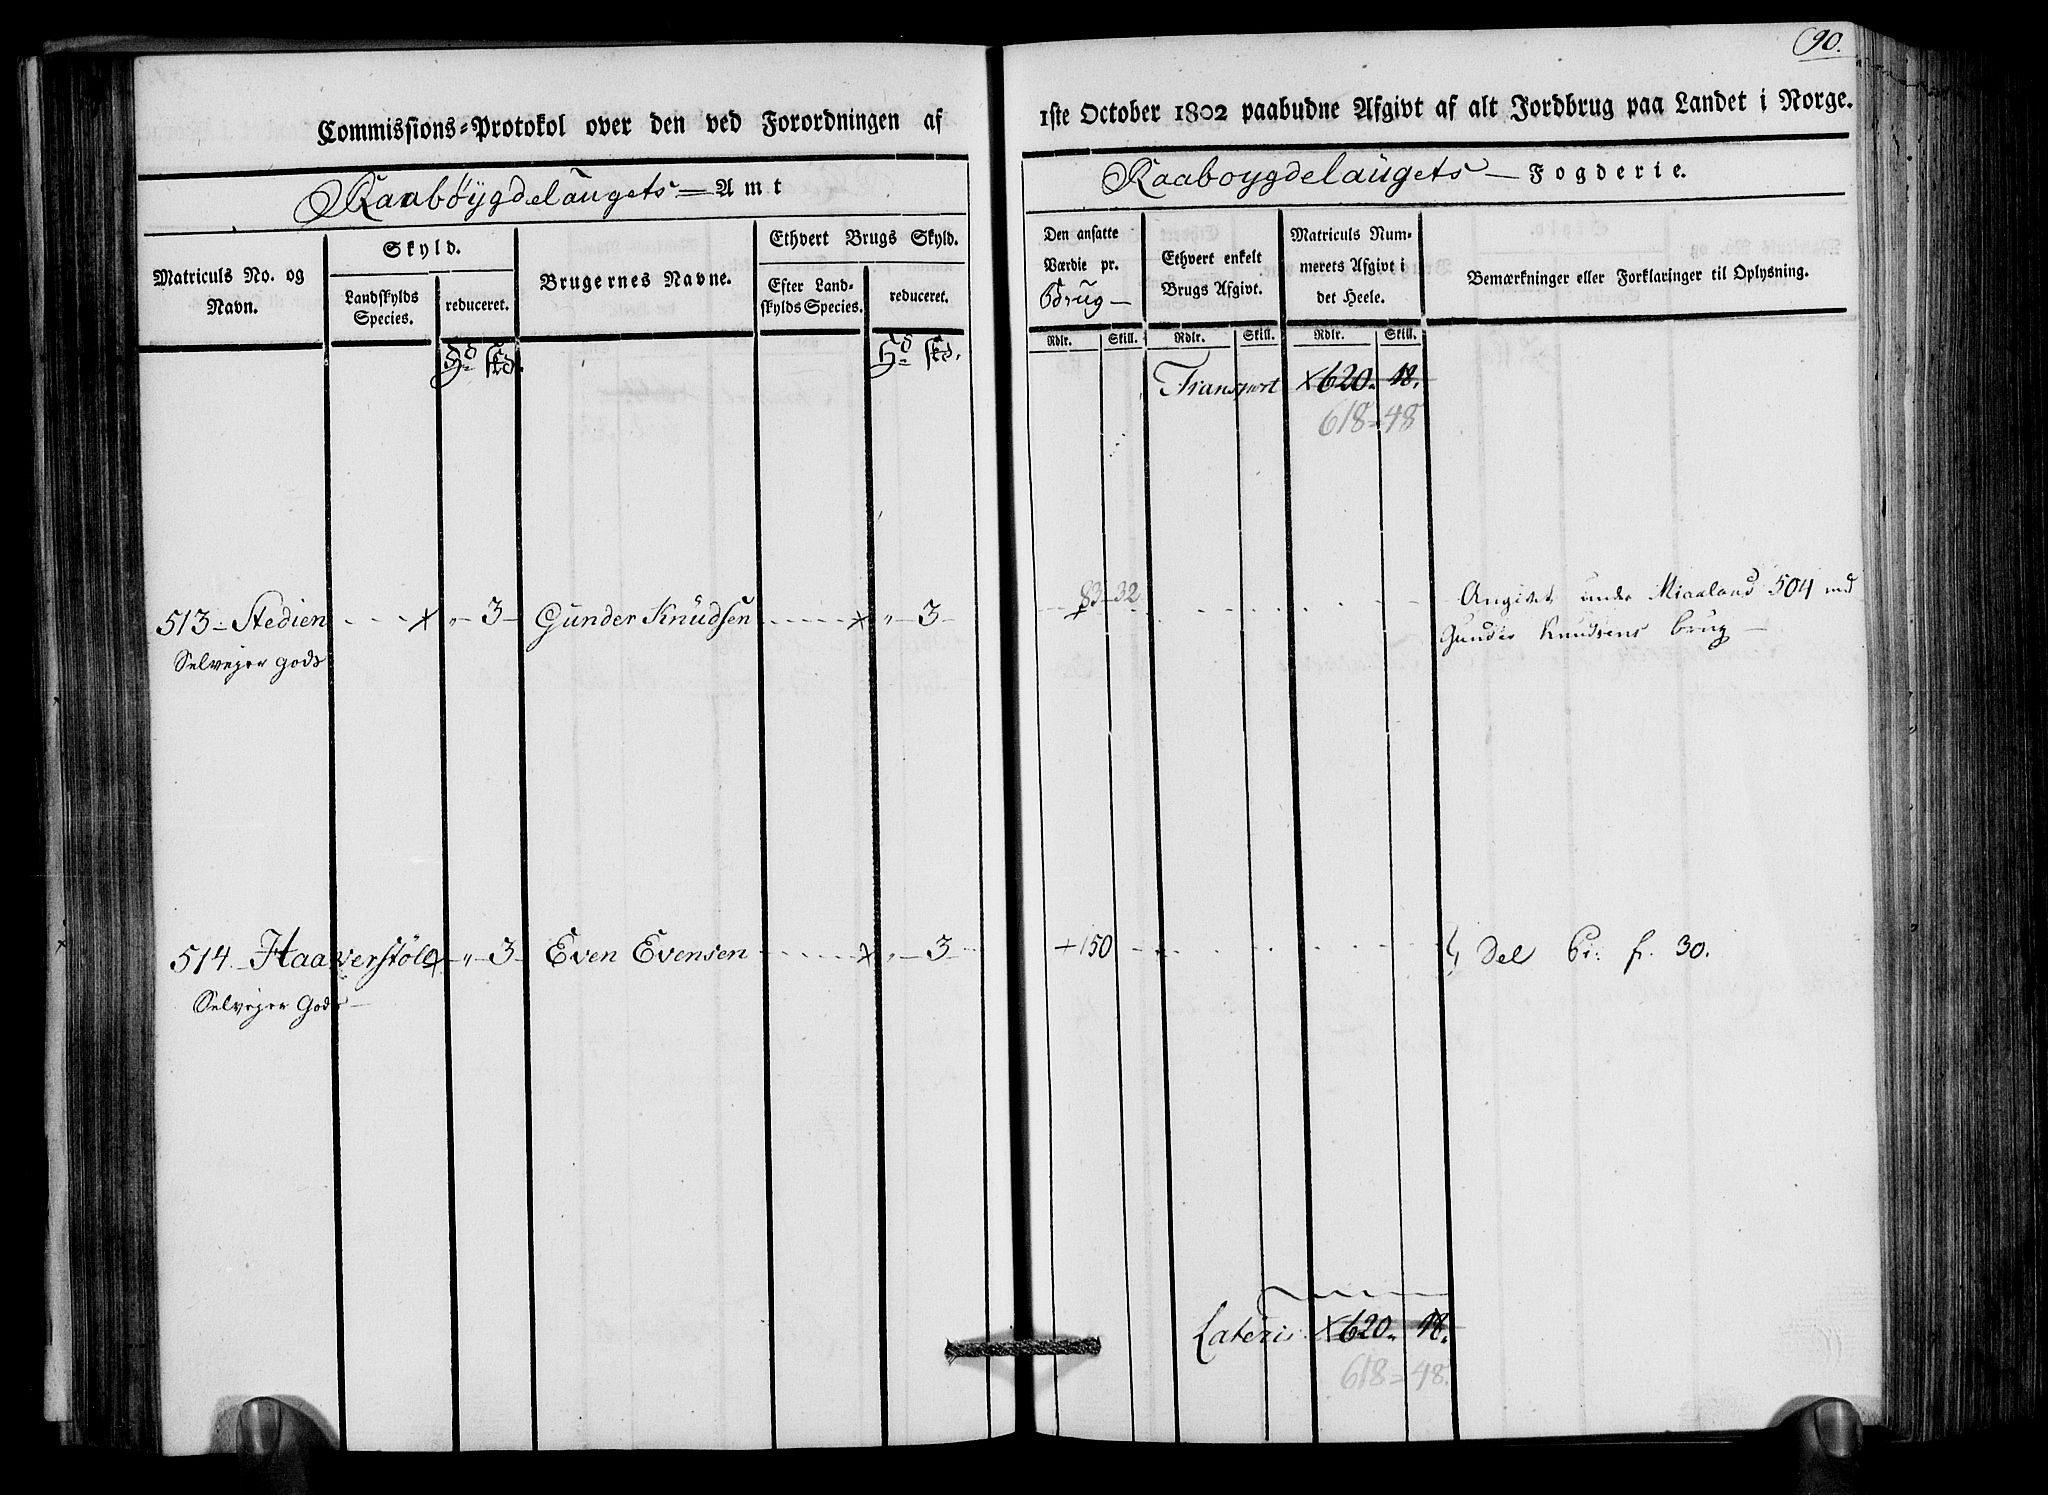 90.
Commissions-Protokol over den ved Forordningen af 1ste October 1802 paabudne Afgivt af alt Jordbrug paa Landet i Norge.
Raabøygdelaugets Amt
Raaboygdelaugets Fogderie.
Matriculs No. og Navn.
Skyld.
Landskylds Species.
reduceret.
Brugernes Navne.
Ethvert Brugs Skyld.
Efter Landskylds Species.
reduceret.
Den ansatte Værdie pr. Brug
Ethvert enkelt Brugs Afgivt.
Matriculs Nummerets Afgivt i det Heele.
Bemærkninger eller Forklaringer til Oplysning.
Rdlr. Skill. Rdlr. Skill. Rdlr. Skill.
Transport x 620. 18.
618=48
513 - Stedien x „ 3 Gunder Knudsen x „ 3 83-32 Angivet under Miaaland 504 ved
Selveyer gods Gunder Knudsens brug
514 - Haaverstöl x „ 3 Even Evensen x „ 3 +150 Del 30.
Selveyer Gods
Lateris x 620. 18.
618=48.